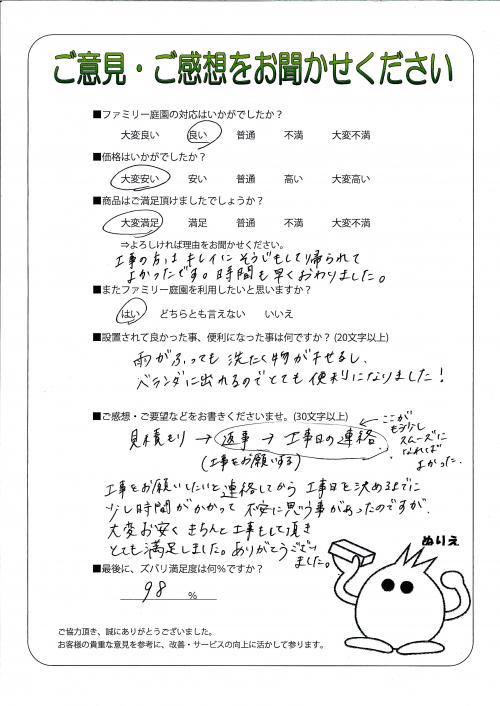 ご意見・ご感想をお聞かせください
■ファミリー庭園の対応はいかがでしたか？
大変良い 良い 普通 不満 大変不満
■価格はいかがでしたか？
大変安い 安い 普通 高い 大変高い
■商品はご満足頂けましたでしょうか？
大変満足 満足 普通 不満 大変不満
⇒よろしければ理由をお聞かせください。
工事の方は キレイに そうじもして帰られて
よかったです。時間も早くおわりました。
■またファミリー庭園を利用したいと思いますか？
はい どちらとも言えない いいえ
■設置されて良かった事、便利になった事は何ですか？(20文字以上)
雨がふっても 洗たく物が干せるし、
ベランダに出れるのでとても便利になりました！
■ご感想・ご要望などをお書きくださいませ。(30文字以上)
見積もり → 返事 → 工事日の連絡
(工事をお願いする)
← ここが
もう少し
スムーズに
なれば
よかった。
工事をお願いしたいと連絡してから 工事日を決めるまでに
少し時間がかかって 不安に思う事があったのですが、
大変お安く きちんと工事もして頂き
とても満足しました。ありがとうござい
ました。
■最後に、ズバリ満足度は何％ですか？
98 ％
ぬりえ
ご協力頂き、誠にありがとうございました。
お客様の貴重な意見を参考に、改善・サービスの向上に活かして参ります。